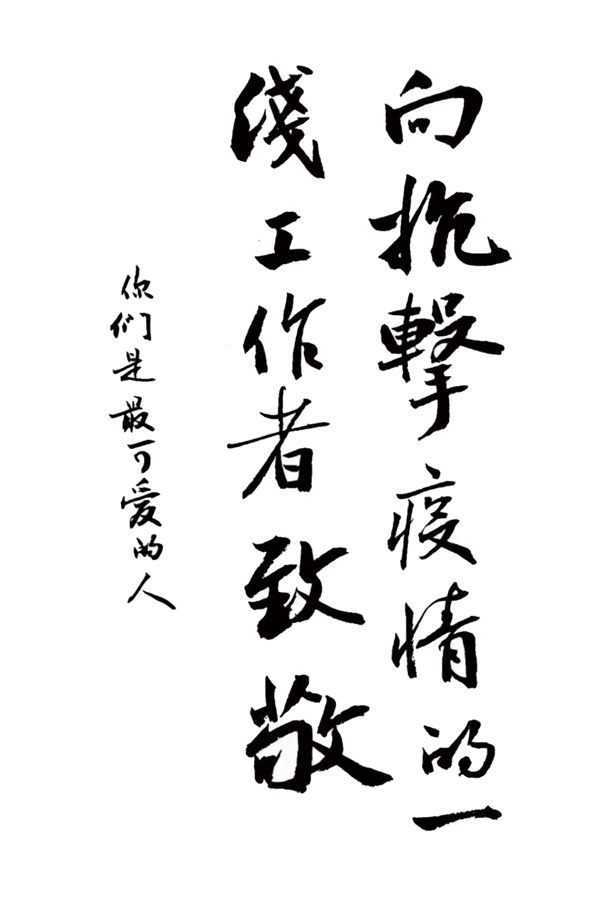 向抗擊疫情的一
綫工作者致敬
你们是最可爱的人